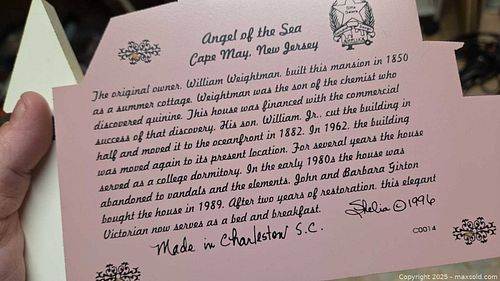 Angel of the Sea
Cape May, New Jersey
The original owner, William Weightman, built this mansion in 1850
as a summer cottage. Weightman was the son of the chemist who
discovered quinine. This house was financed with the commercial
success of that discovery. His son, William, Jr., cut the building in
half and moved it to the oceanfront in 1882. In 1962, the building
was moved again to its present location. For several years the house
served as a college dormitory. In the early 1980s the house was
abandoned to vandals and the elements. John and Barbara Girton
bought the house in 1989. After two years of restoration, this elegant
Victorian now serves as a bed and breakfast.
Shelia © 1996
Made in Charleston S.C.
C0014
Copyright 2025 - maxsold.com